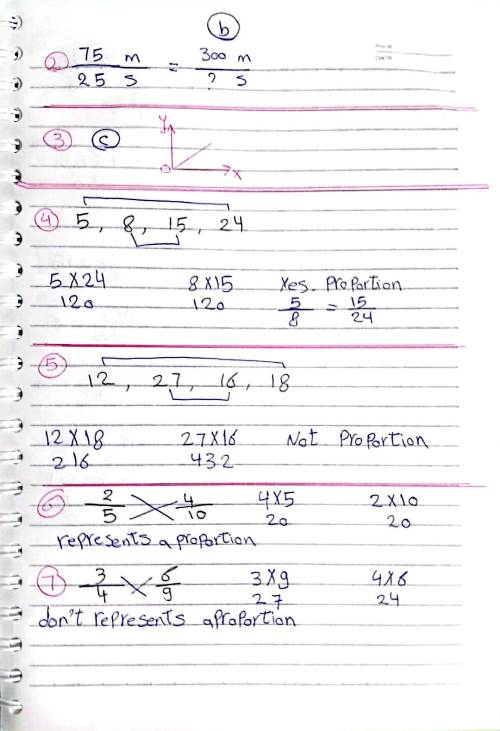 b
2 75 m / 25 s = 300 m / ? s
3 c y O x
4 5, 8, 15, 24
5 X 24 8 X 15 Yes. Proportion
120 120 5/8 = 15/24
5 12, 27, 16, 18
12 X 18 27 X 16 Not Proportion
216 432
6 2/5 4/10 4 X 5 2 X 10
20 20
represents a proportion
7 3/4 6/9 3 X 9 4 X 6
27 24
don't represents a proportion